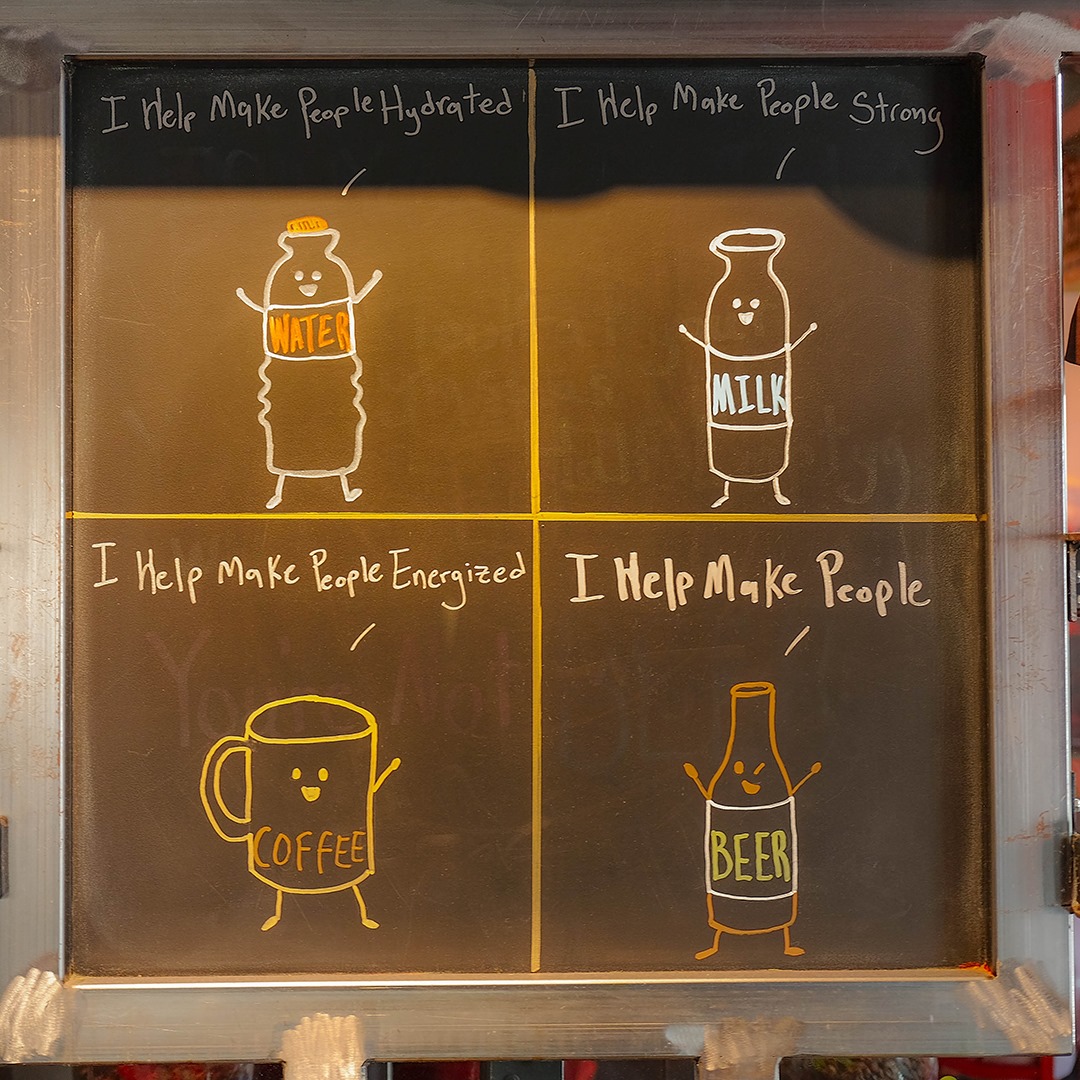 I Help Make People Hydrated
I Help Make People Strong
WATER
MILK
I Help Make People Energized
I Help Make People
COFFEE
BEER